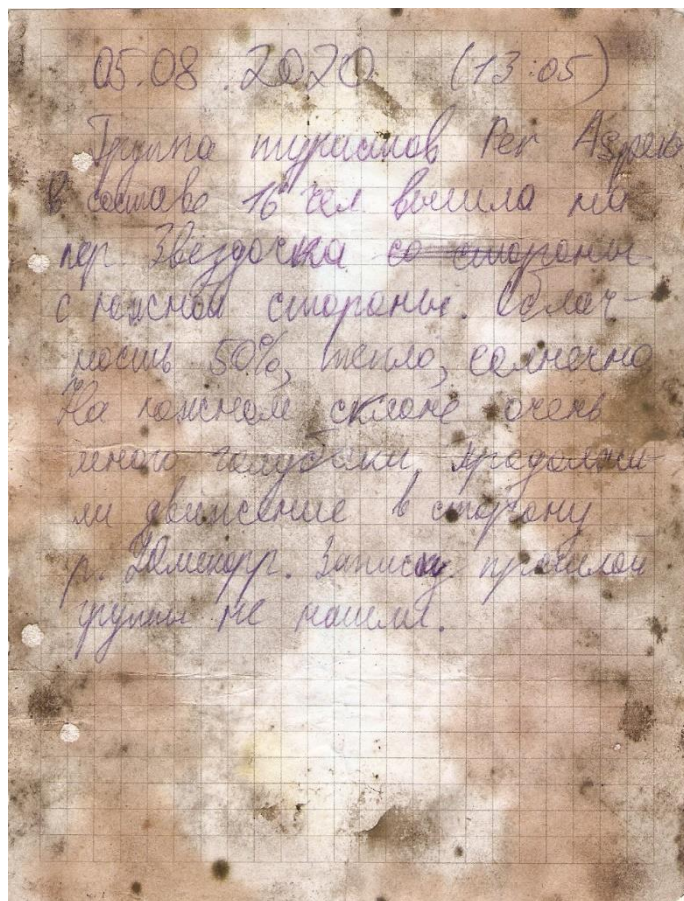 05.08.2020 (13:05)
Группа туристов Per Aspera
в составе 16 чел. вышла на
пер. Звёздочка со стороны
с южной стороны. Облач-
ность 50%, тепло, солнечно
На южном склоне очень
много голубики. Продолжи-
ли движение в сторону
р. Записку прошлой
группы не нашли.